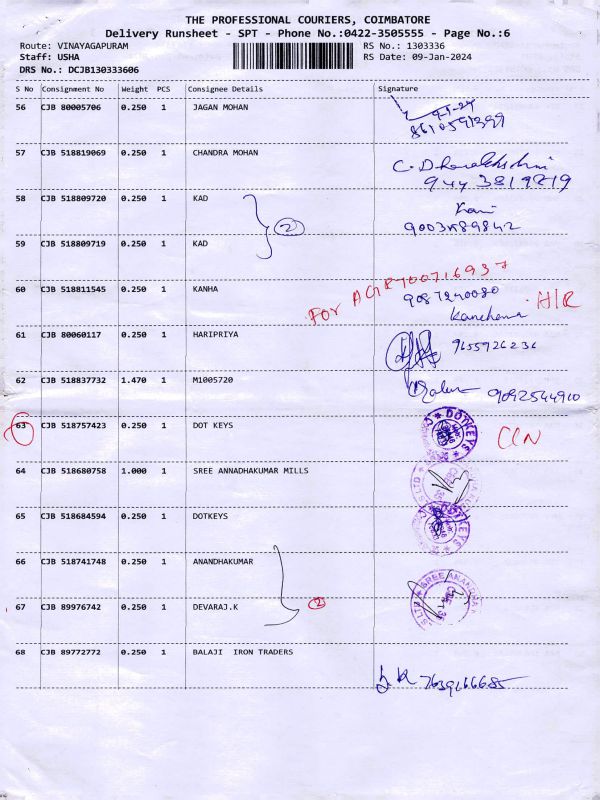 THE PROFESSIONAL COURIERS, COIMBATORE
Delivery Runsheet - SPT - Phone No.:0422-3505555 - Page No.:6
Route: VINAYAGAPURAM RS No.: 1303336
Staff: USHA RS Date: 09-Jan-2024
DRS No.: DCJB130333606
S No Consignment No Weight PCS Consignee Details Signature
56 CJB 80005706 0.250 1 JAGAN MOHAN 9-1-24
8610591399
57 CJB 518819069 0.250 1 CHANDRA MOHAN
944 3819219
58 CJB 518809720 0.250 1 KAD
2
59 CJB 518809719 0.250 1 KAD
60 CJB 518811545 0.250 1 KANHA 9087240080
For H/R
Kanchana
61 CJB 80060117 0.250 1 HARIPRIYA 9655926236
62 CJB 518837732 1.470 1 M1005720 9092544910
63 CJB 518757423 0.250 1 DOT KEYS DOTKEYS
64 CJB 518680758 1.000 1 SREE ANNADHAKUMAR MILLS
65 CJB 518684594 0.250 1 DOTKEYS
66 CJB 518741748 0.250 1 ANANDHAKUMAR
67 CJB 89976742 0.250 1 DEVARAJ.K 2
68 CJB 89772772 0.250 1 BALAJI IRON TRADERS
7639166685